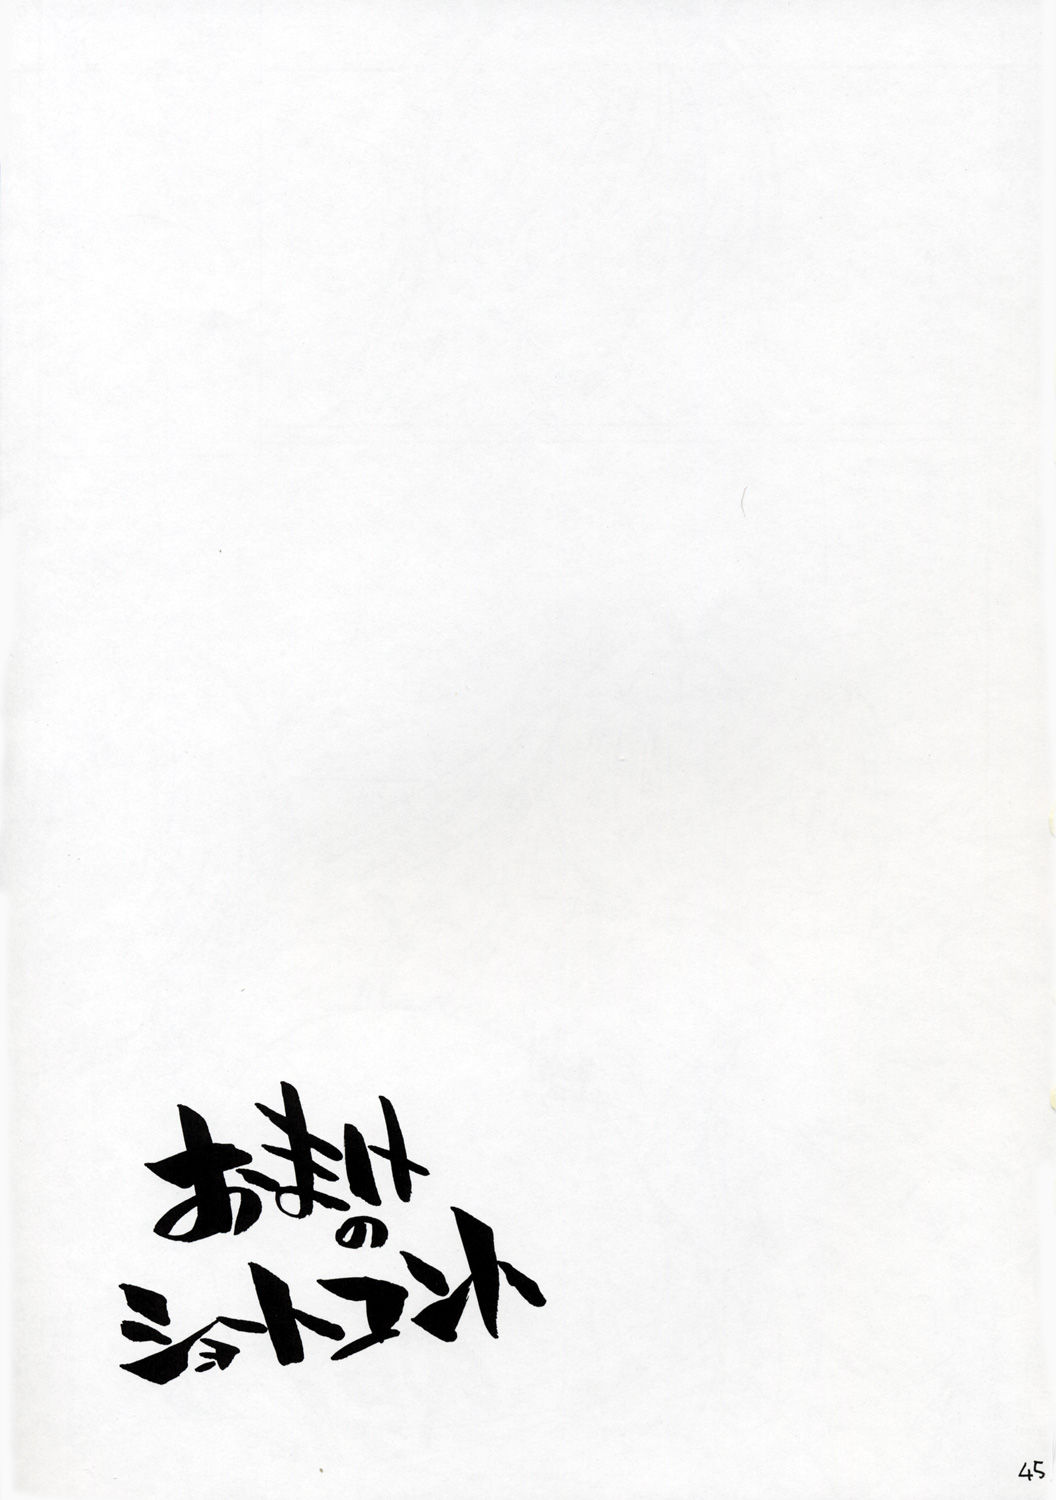 おまけ
の
ショートコント
45